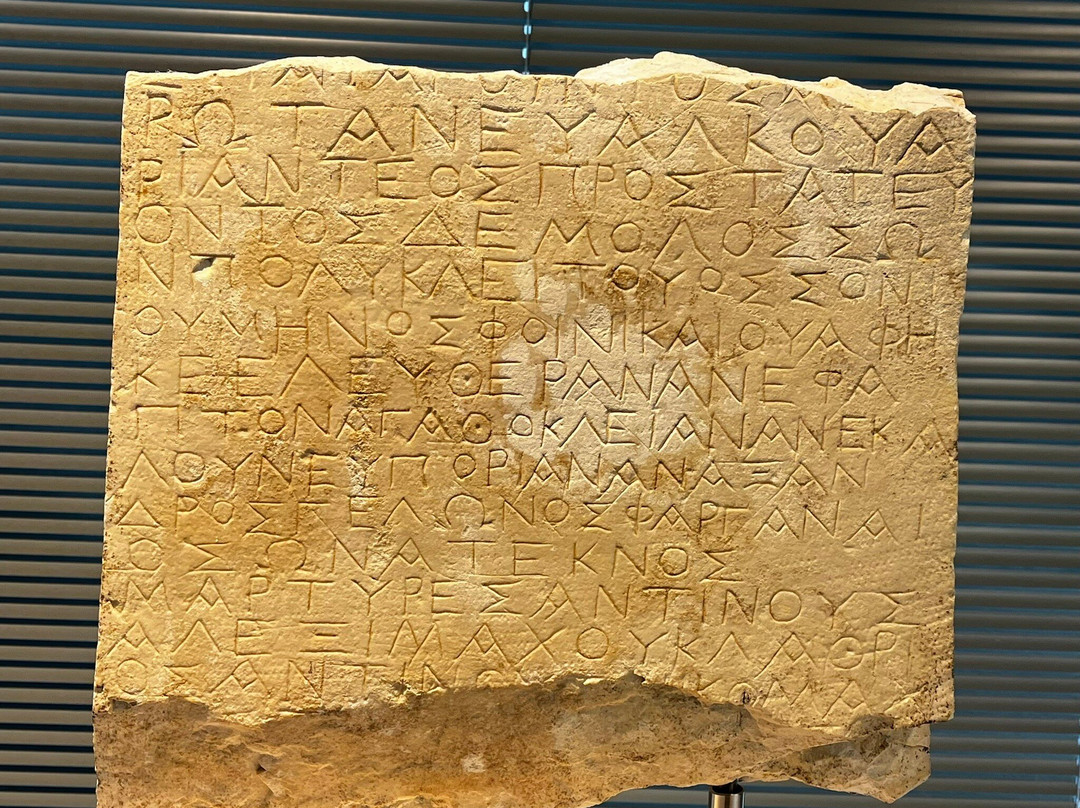 ΟΥΝΤΟΣΑ
ΡΩΤΑΝΕΥΑΛΚΟΥΑ
ΡΙΑΝΤΕΟΣΠΡΟΣΤΑΤΕΥ
ΟΝΤΟΣΔΕΜΟΛΟΣΣΩ
ΝΠΟΛΥΚΛΕΙΤΟΥΟΣΣΟΝΙ
ΟΥΜΗΝΟΣΦΟΙΝΙΚΑΙΟΥΑΦΗ
ΚΕΕΛΕΥΘΕΡΑΝΑΝΕΦΑ
ΠΤΟΝΑΓΑΘΟΚΛΕΙΑΝΑΝΕΚΑ
ΛΟΥΝΕΥΠΟΡΙΑΝΑΝΑΞΑΝ
ΔΡΟΣΓΕΛΩΝΟΣΦΑΡΓΑΝΑΙ
ΟΣΩΝΑΤΕΚΝΟΣ
ΜΑΡΤΥΡΕΣΑΝΤΙΝΟΥΣ
ΑΛΕΞΙΜΑΧΟΥΚΛΑΘΡΙ
ΟΣΑΝΤΙΝΟ ΚΟΜΑ